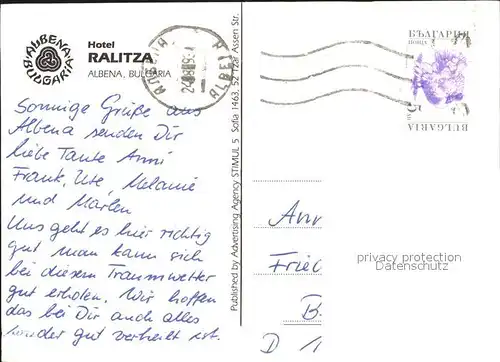 ALBENA
BULGARIA
Hotel
RALITZA
ALBENA, BULGARIA
Sonnige Grüße aus
Albena senden Dir
liebe Tante Anni
Frank, Ute, Melanie
und Marlen
Uns geht es hier richtig
gut man kann sich
bei diesem Traumwetter
gut erholen. Wir hoffen
das bei Dir auch alles
wieder gut verheilt ist.
Published by Advertising Agency STIMUL 5 Sofia 1463, 52 Tzar Assen Str.
ALBENA
БЪЛГАРИЯ
ПОЩА
5
BULGARIA
Ann
Fried
B
D
privacy protection
Datenschutz